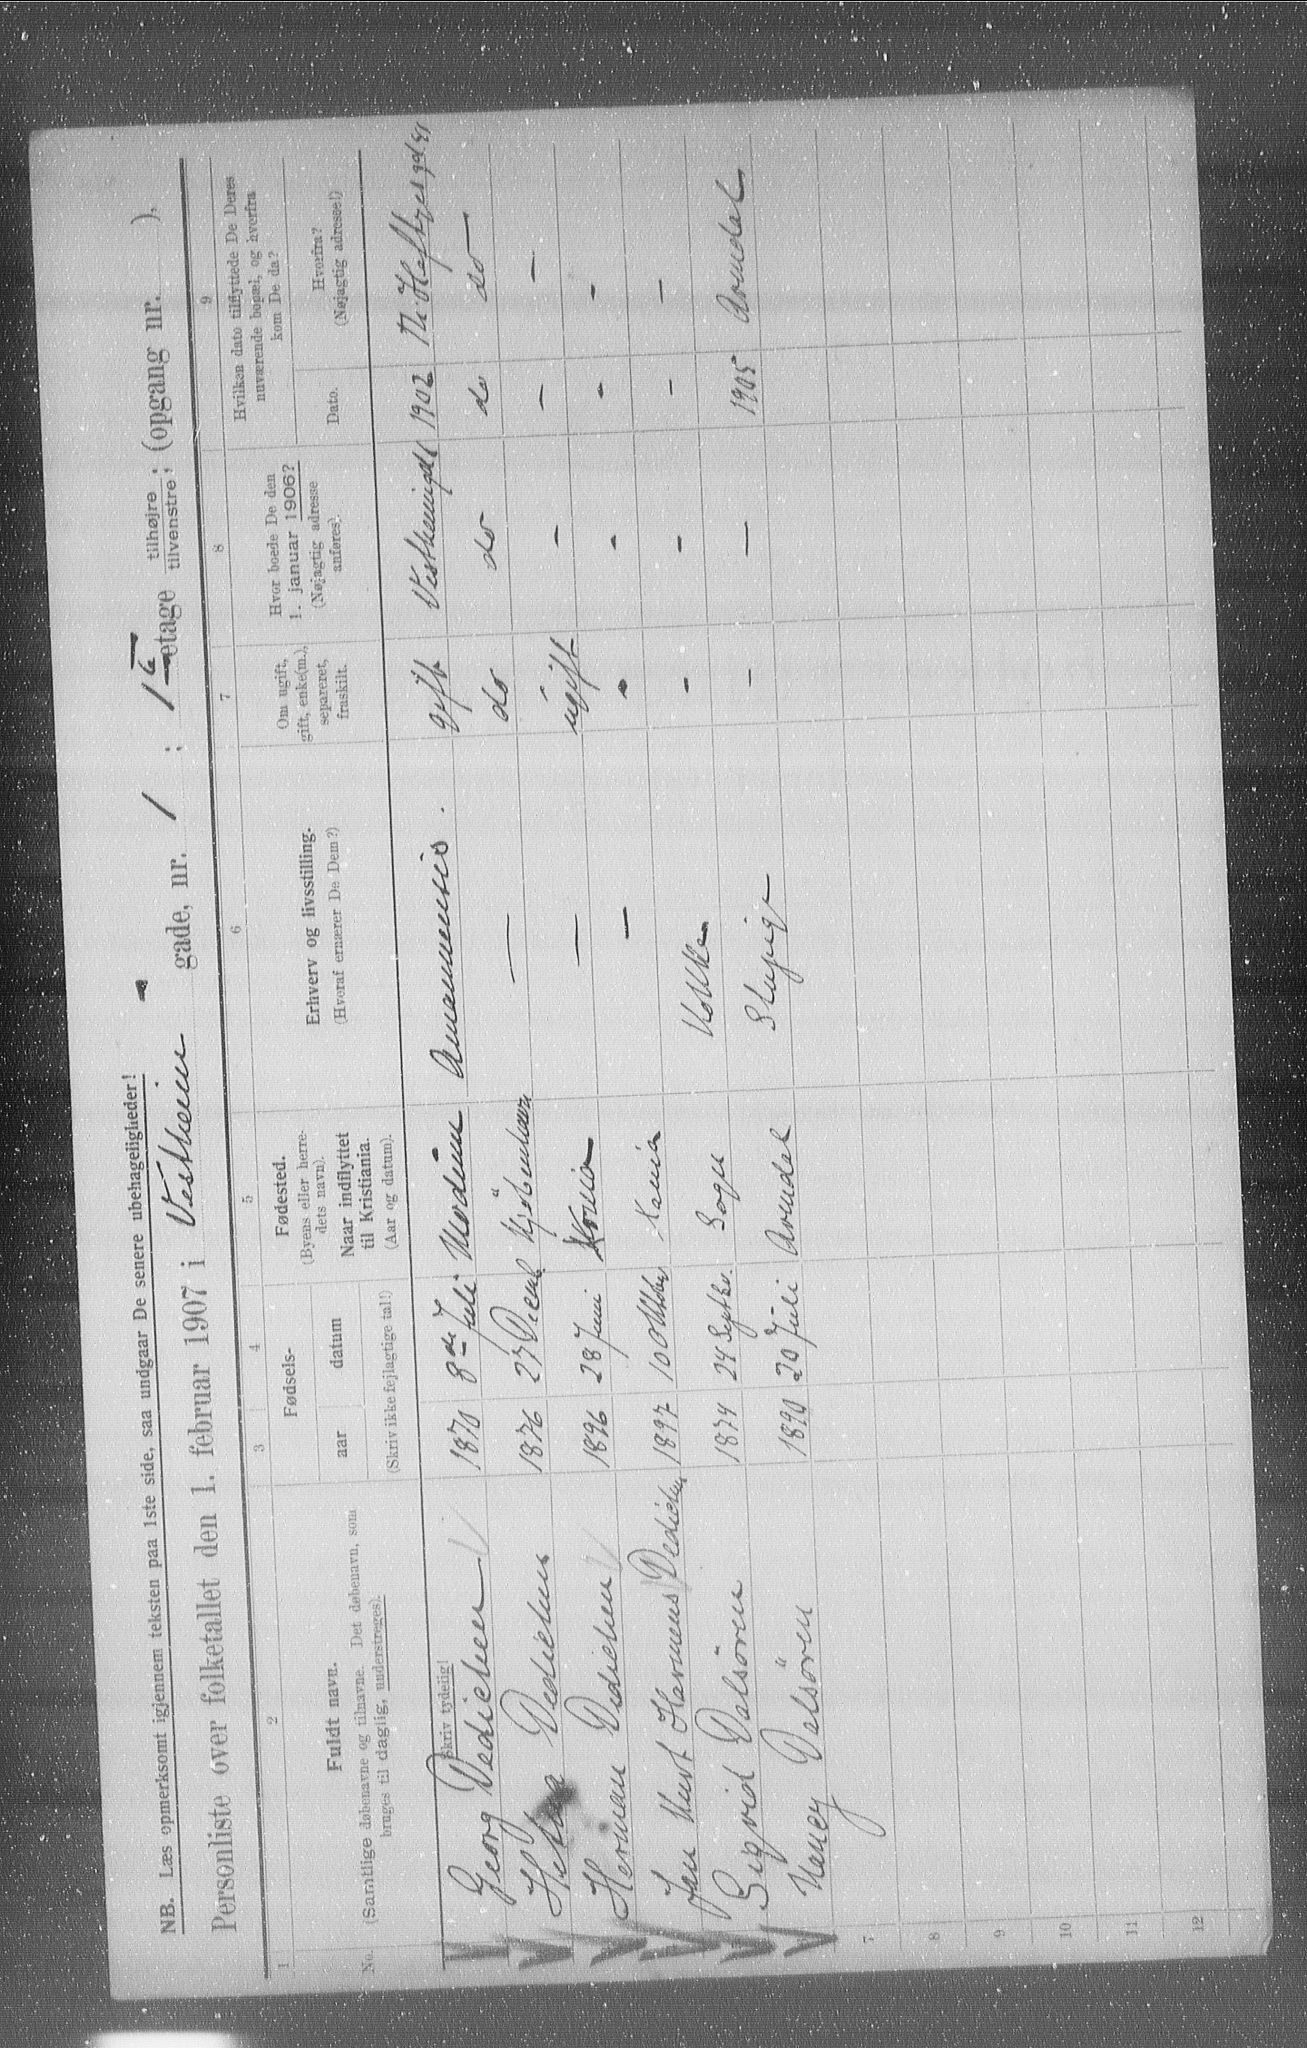 NB. Læs opmerksomt igjennem teksten paa 1ste side, saa undgaar De senere ubehageligheder!
Personliste over folketallet den 1. februar 1907 i Vestheim gade, nr. 1 ; 1 etage tilhøjre tilvenstre ; (opgang nr. ),
1 2 3 4 5 6 7 8 9
No. Fuldt navn.
(Samtlige døbenavne og tilnavne. Det døbenavn, som
bruges til daglig, understreges).
Skriv tydelig!
Fødsels-
aar datum
(Skriv ikke fejlagtige tal!)
Fødested.
(Byens eller herre-
dets navn).
Naar indflyttet
til Kristiania.
(Aar og datum).
Erhverv og livsstilling.
(Hvoraf ernærer De Dem?)
Om ugift,
gift, enke(m.),
separeret,
fraskilt.
Hvor boede De den
1. januar 1906?
(Nøjagtig adresse
anføres).
Hvilken dato tilflyttede De Deres
nuværende bopæl, og hvorfra
kom De da?
Dato. Hvorfra?
(Nøjagtig adresse!)
Georg Dedichen 1870 8de Juli Modum gift 1902
Dedichen 1876 27 Kjöbenhavn — do do do do —
Herman Dedichen 1896 28 Juni Kania — ugift - - -
Jan Hermens Dedichen 1897 10 Oktober Kania — - - - -
Sigrid Dalsören 1874 24 Septbr. Sogn Kokke - - - -
Nancy Dalsören 1890 20 Juli Arendal Stupige - — 1905 Arendal
7
8
9
10
11
12